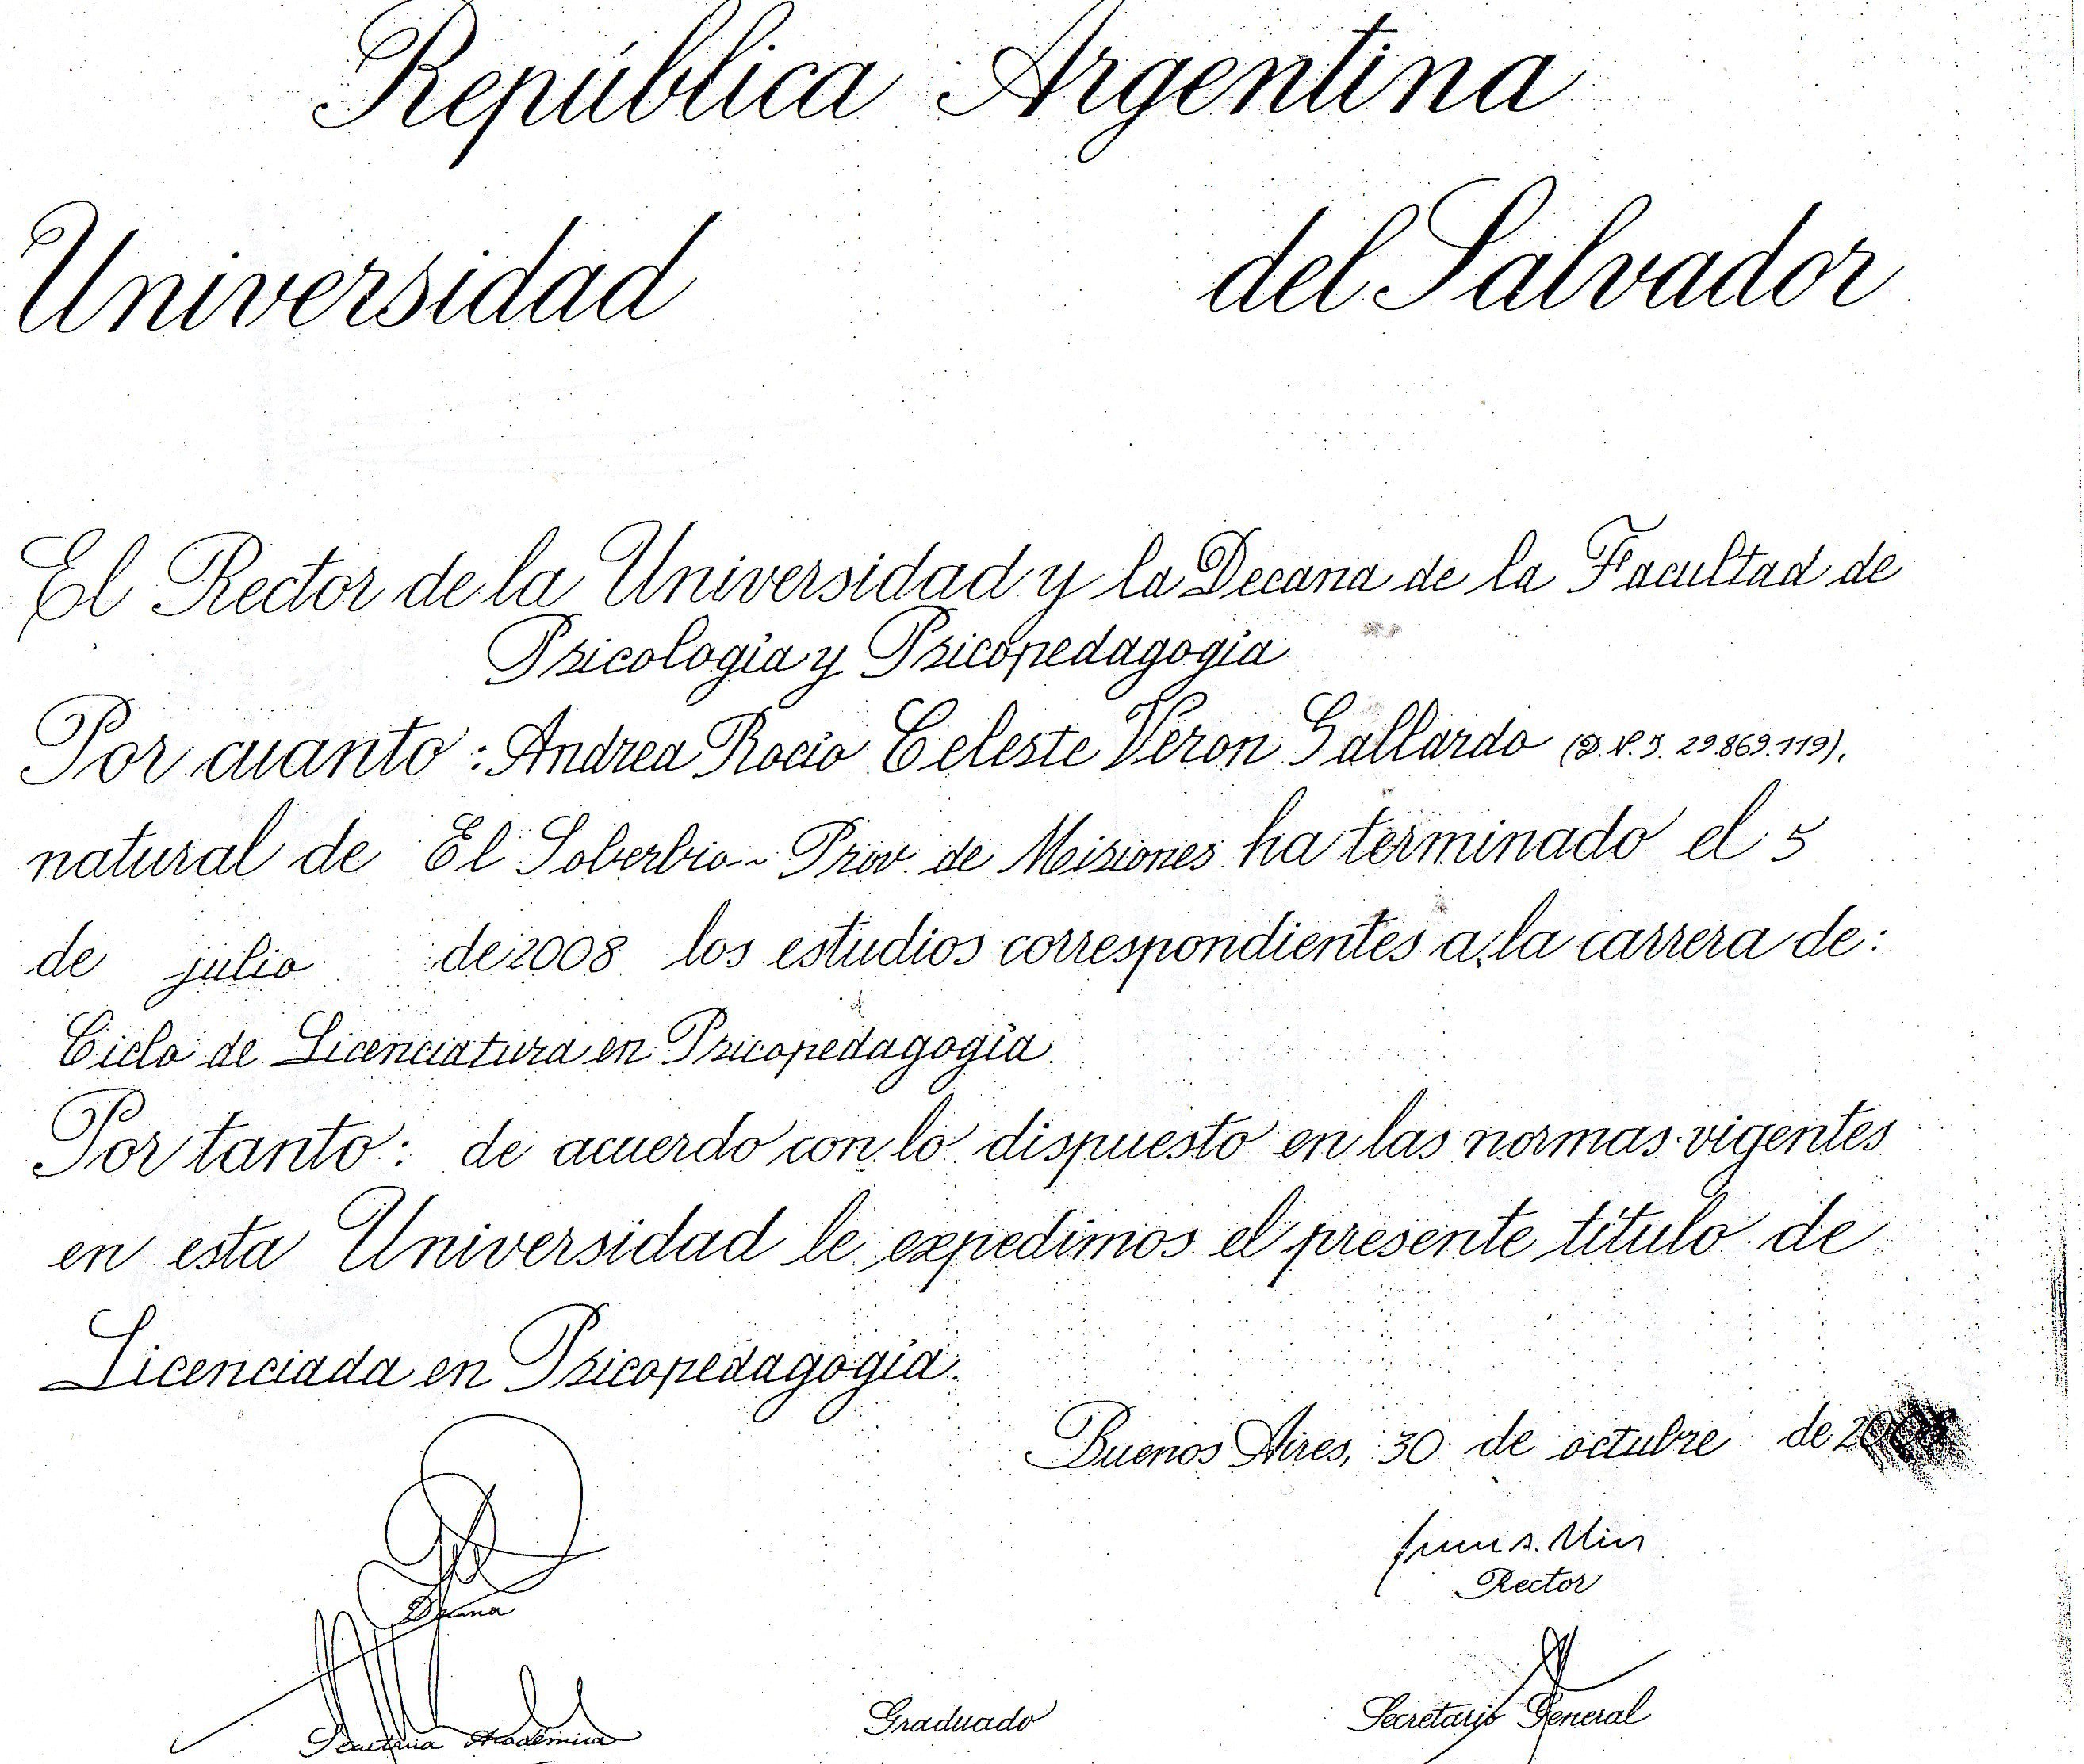 República Argentina
Universidad del Salvador
El Rector de la Universidad y la Decana de la Facultad de
Psicología y Psicopedagogía
Por cuanto: Andrea Rocío Celeste Veron Gallardo (D.N.I. 29.869.119),
natural de El Soberbio - Prov. de Misiones ha terminado el 5
de julio de 2008 los estudios correspondientes a la carrera de:
Ciclo de Licenciatura en Psicopedagogía
Por tanto: de acuerdo con lo dispuesto en las normas vigentes
en esta Universidad le expedimos el presente título de
Licenciada en Psicopedagogía.
Buenos Aires, 30 de octubre de
Decana
Rector
Secretaria Académica
Graduado
Secretario General